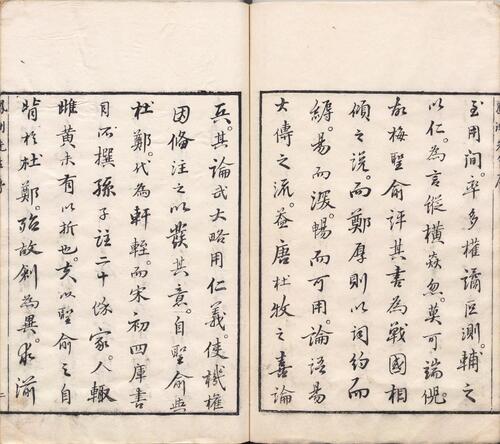 至用間。率多權譎叵測。輔之
以仁。為言縱橫焱忽。莫可端倪。
故梅聖俞評其書為戰國相
傾之說。而鄭厚則以詞約而
縟。易而深。暢而可用。論語易
大傳之流。益唐杜牧之喜論
兵。其論武大略用仁義。使機權
因備注之以發其意。自聖俞與
杜鄭。代為軒輊。而宋初四庫書
目所撰孫子注二十餘家。人輒
雌黃未有以折也。夫以聖俞之自
背於杜鄭。殆故創為異。求湔